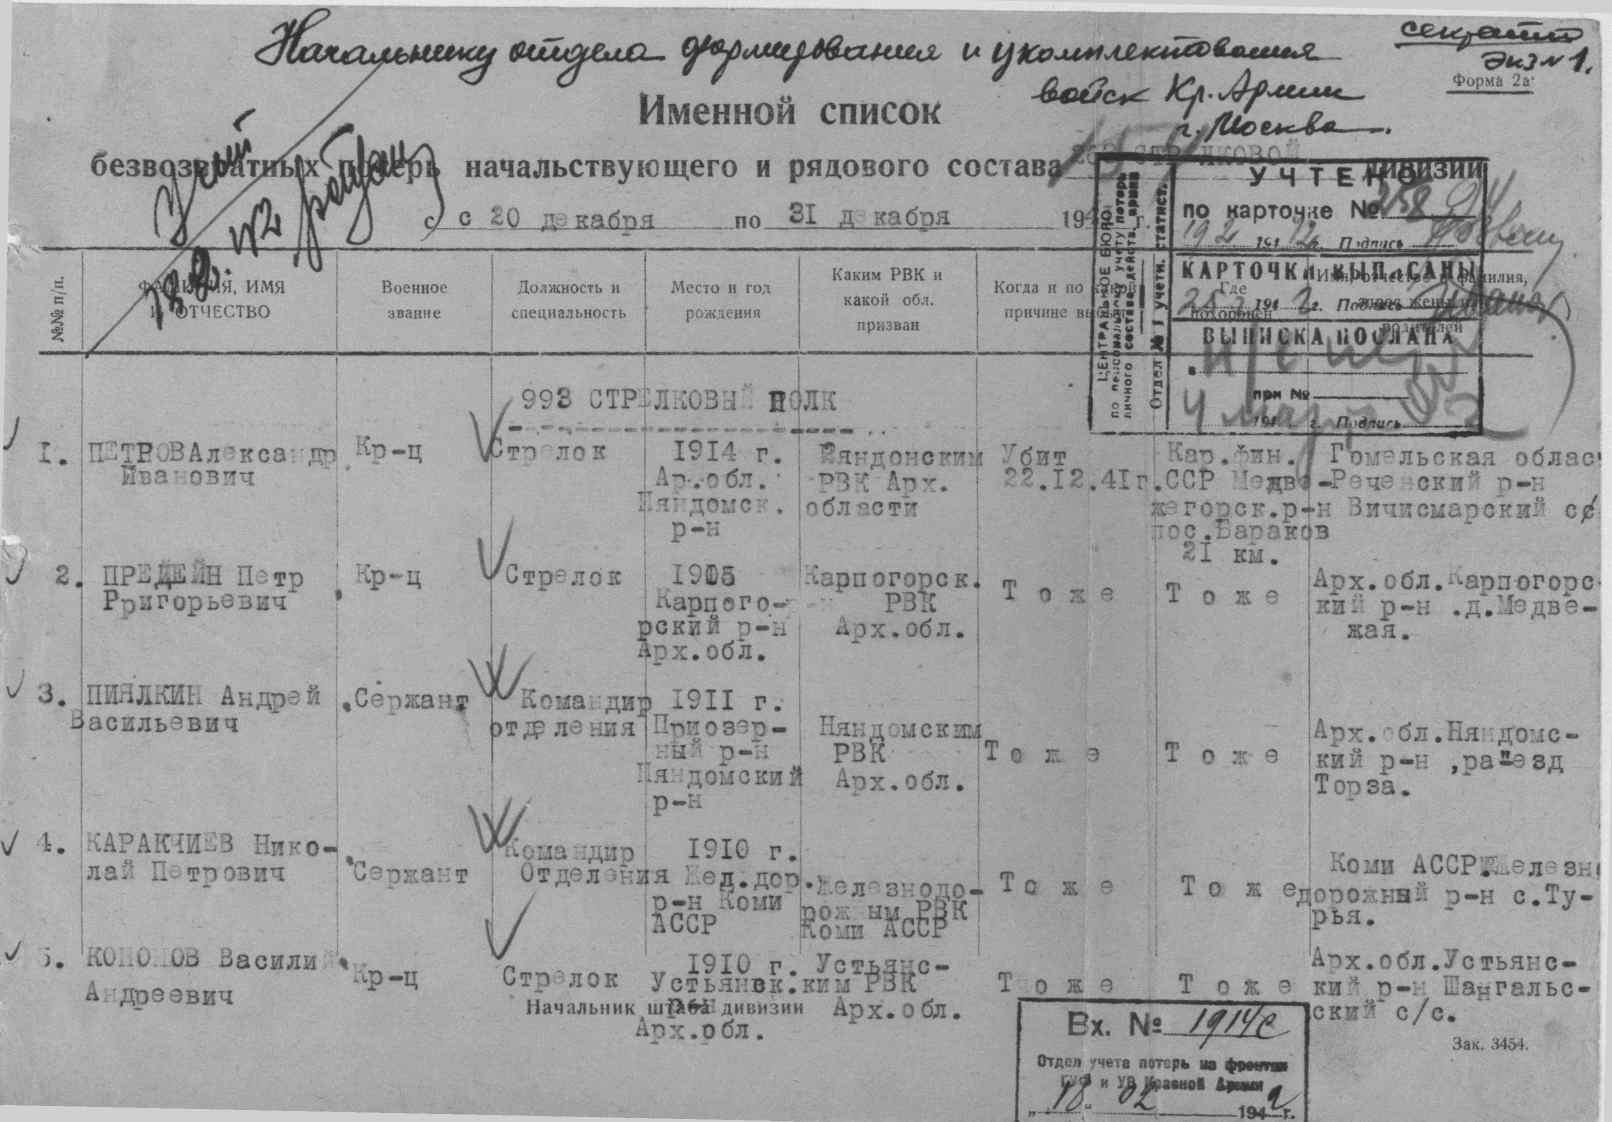 секретно
Экз № 1.
Форма 2а
Начальнику отдела формирования и укомплектования
войск Кр. Армии
г. Москва
Именной список
безвозвратных потерь начальствующего и рядового состава СТРЕЛКОВОЙ дивизии
с с 20 декабря по 31 декабря 194 г.
№№ п/п.
ФАМИЛИЯ, ИМЯ
И ОТЧЕСТВО
Военное
звание
Должность и
специальность
Место и год
рождения
Каким РВК и
какой обл.
призван
Когда и по какой
причине выбыл
Где
похоронен
Имя, отчество и фамилия,
жены
родителей
ЦЕНТРАЛЬНОЕ БЮРО
по персональному учету потерь
личного состава действ. армии
Отдел № 1 учетн. статист.
УЧТЕНО
по карточке № 258
192 Подпись
КАРТОЧКИ ВЫПИСАНЫ
25 194 2 г. Подпись
ВЫПИСКА ПОСЛАНА
в
при №
4 194 г. Подпись
993 СТРЕЛКОВЫЙ ПОЛК
1. ПЕТРОВ Александр
Иванович
Кр-ц
Стрелок
1914 г.
Ар.обл.
Няндомск.
р-н
Няндонским
РВК Арх.
области
Убит
22.12.41г.
Кар.фин.
ССР Медве-
жегорск.р-н
пос.Бараков
21 км.
Гомельская облас
Реченский р-н
Вичисмарский с/
2. ПРЕДЕИН Петр
Рригорьевич
Кр-ц
Стрелок
1905
Карпого-
рский р-н
Арх.обл.
Карпогорск.
РВК
Арх.обл.
Т о ж е
Т о ж е
Арх.обл.Карпогорс
кий р-н .д.Медве-
жая.
3. ПИЯЛКИН Андрей
Васильевич
Сержант
Командир
отделения
1911 г.
Приозер-
ный р-н
Няндомский
р-н
Няндомским
РВК
Арх.обл.
Т о ж е
Т о ж е
Арх.обл.Няндомс-
кий р-н ,раз"езд
Торза.
4. КАРАКЧИЕВ Нико-
лай Петрович
Сержант
Командир
Отделения
1910 г.
Жел.дор.
р-н Коми
АССР
Железнодо-
рожным РВК
Коми АССР
Т о ж е
Т о ж е
Коми АССР.Железн
дорожный р-н с.Ту-
рья.
5. КОНОНОВ Василий
Андреевич
Кр-ц
Стрелок
1910 г.
Устьянск.
р-н
Арх.обл.
Устьянс-
ким РВК
Арх.обл.
Т о ж е
Т о ж е
Арх.обл.Устьянс-
кий р-н Шангальс-
ский с/с.
Начальник штаба дивизии
Зак. 3454.
Вх. № 1914с
Отдел учета потерь на фронтах
ГУФ и УВ Красной Армии
„18" 02 1942 г.